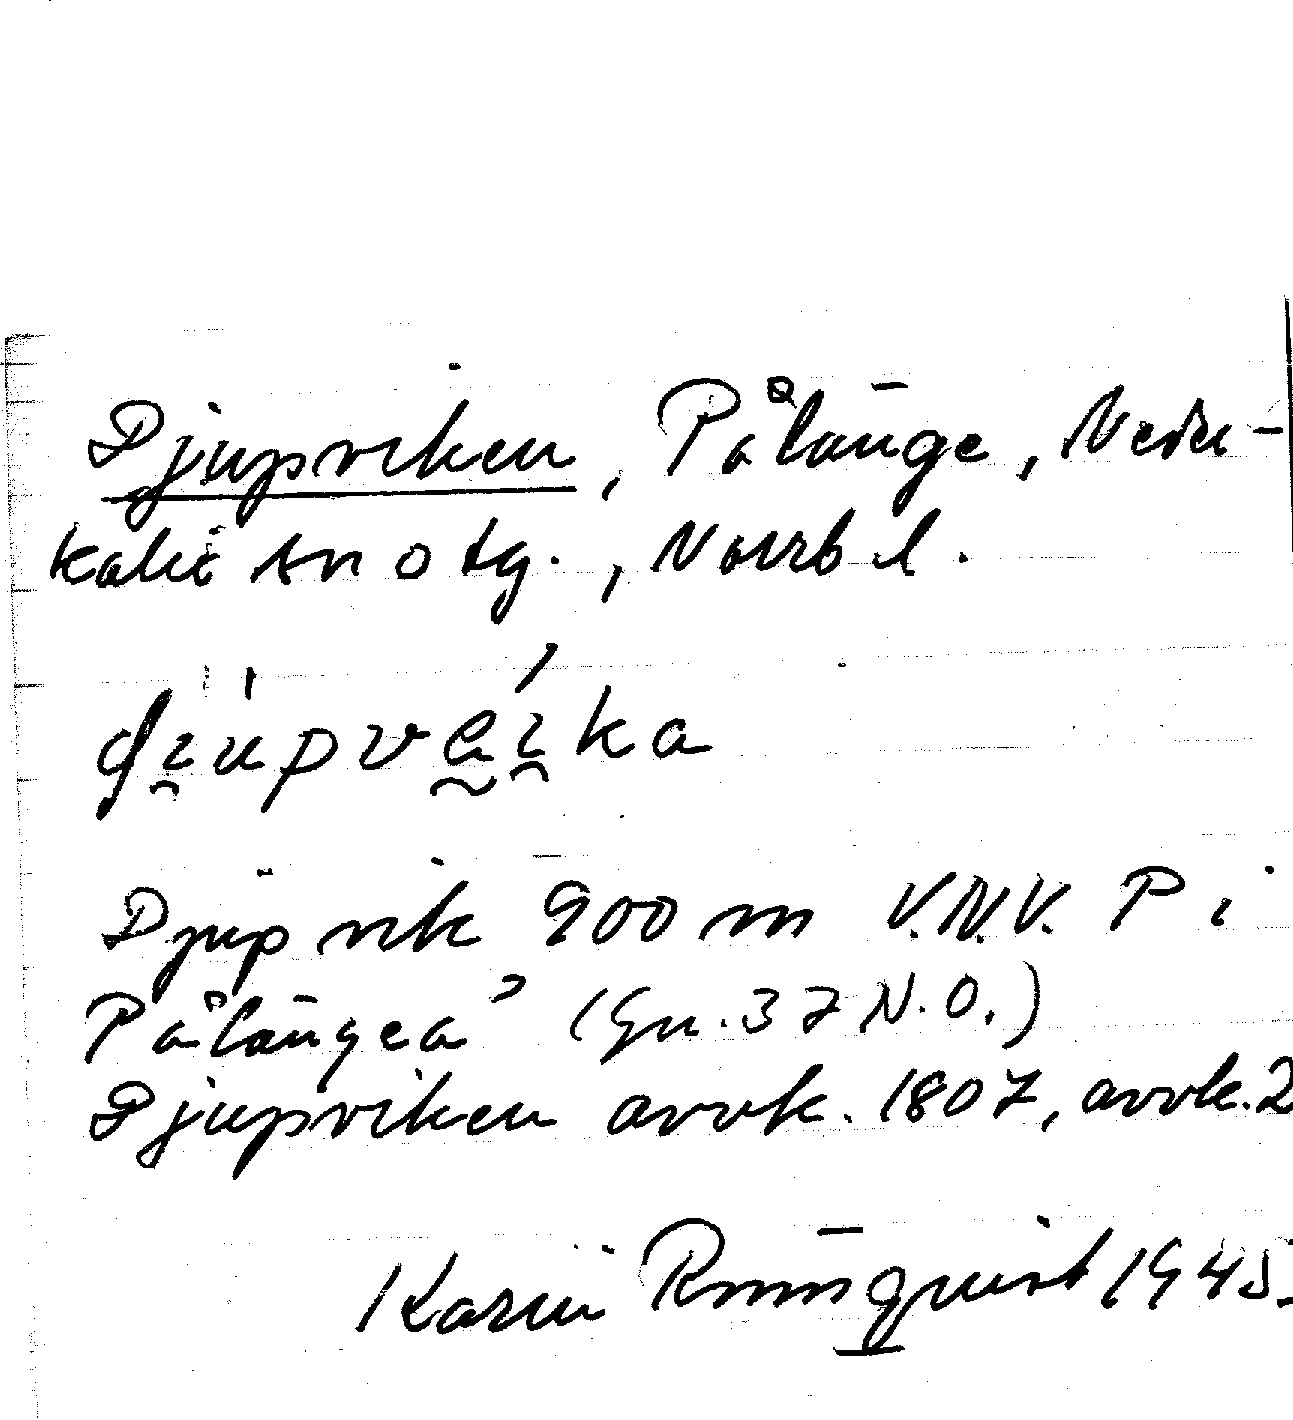 Djupviken, Pålänge, Neder-
kalix sn o tg., Norrb. l.
di̯úpvæi̯ka
Djup vik 900 m V.N.V. P i
Pålängeå (Gu. 37 N.O.)
Djupviken avvk. 1807, avvk. 2
Karin Rönnquist 1945.